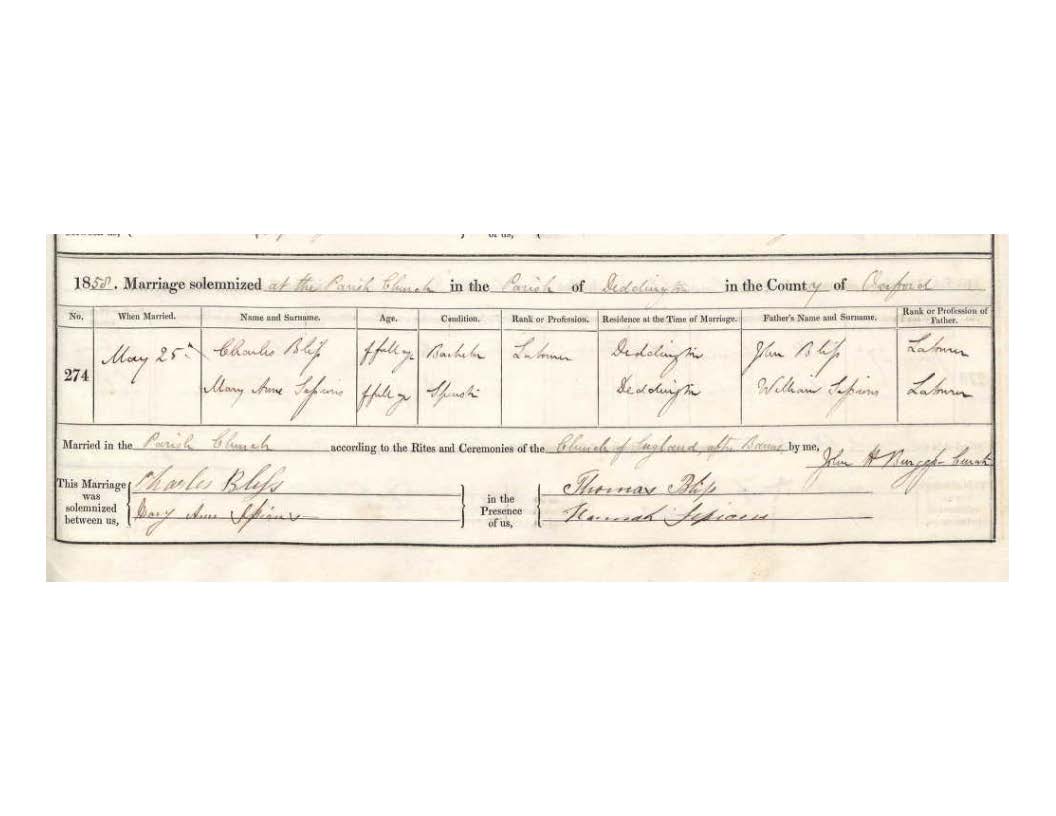 1858. Marriage solemnized at the Parish Church in the Parish of Deddington in the County of Oxford
No. When Married. Name and Surname. Age. Condition. Rank or Profession. Residence at the Time of Marriage. Father's Name and Surname. Rank or Profession of Father.
274 May 25th Charles Bliss ffull age Bachelor Labourer Deddington John Bliss Labourer
Mary Anne Sessions ffull age Spinster Deddington William Sessions Labourer
Married in the Parish Church according to the Rites and Ceremonies of the Church of England, after Banns by me,
John H Burgess Curate
This Marriage was solemnized between us, { Charles Bliss } in the Presence of us, { Thomas Bliss
Mary Ann Hannah